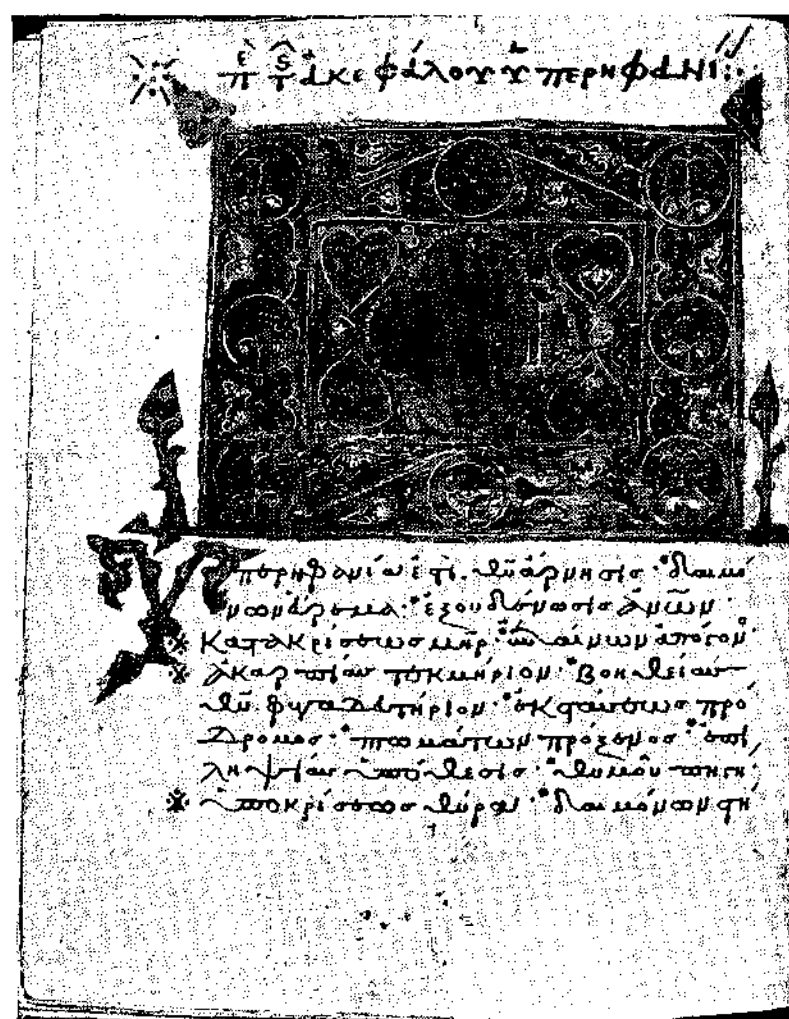 πε τ ἀκεφάλου ὑπερηφανί
Ὑπερηφανία ἐστι θῦ ἄρνησις · δαιμό
νων εὕρεμα · ἐξουδένωσις ἀνῶν ·
Κατακρίσεως μηρ · ἐπαίνων ἀπόγονο
ἀκαρπίας τεκμήριον · βοηθείας
θῦ φυγαδευτήριον · ἐκστάσεως πρό
δρομος · πτωμάτων πρόξενος · ἐπι
ληψίας ὑπόθεσις · θυμοῦ πηγή
ὑποκρίσεως θύρα · δαιμόνων στή